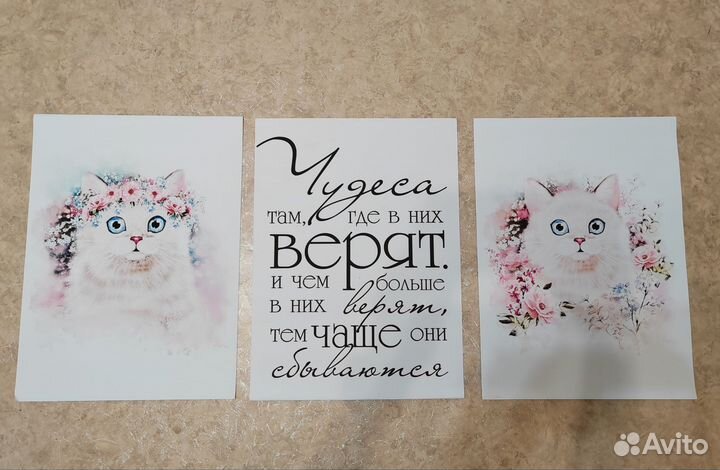 Чудеса
там, где в них
верят.
и чем больше
в них верят,
тем чаще они
сбываются
Avito